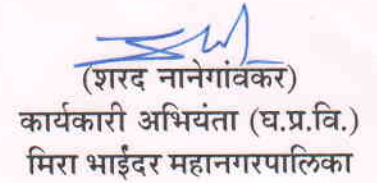 (शरद नानेगांवकर)
कार्यकारी अभियंता (घ.प्र.वि.)
मिरा भाईंदर महानगरपालिका